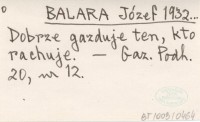 BALARA Józef 1932...
Dobrze gazduje ten, kto
rachuje. — Gaz. Podh.
20, nr 12.